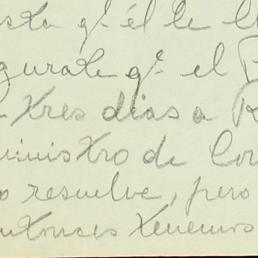 sta q.e él le ll
gurate q.e el P
tres dias a R
ministro de Cor
o resuelve, pero
entonces tenemos